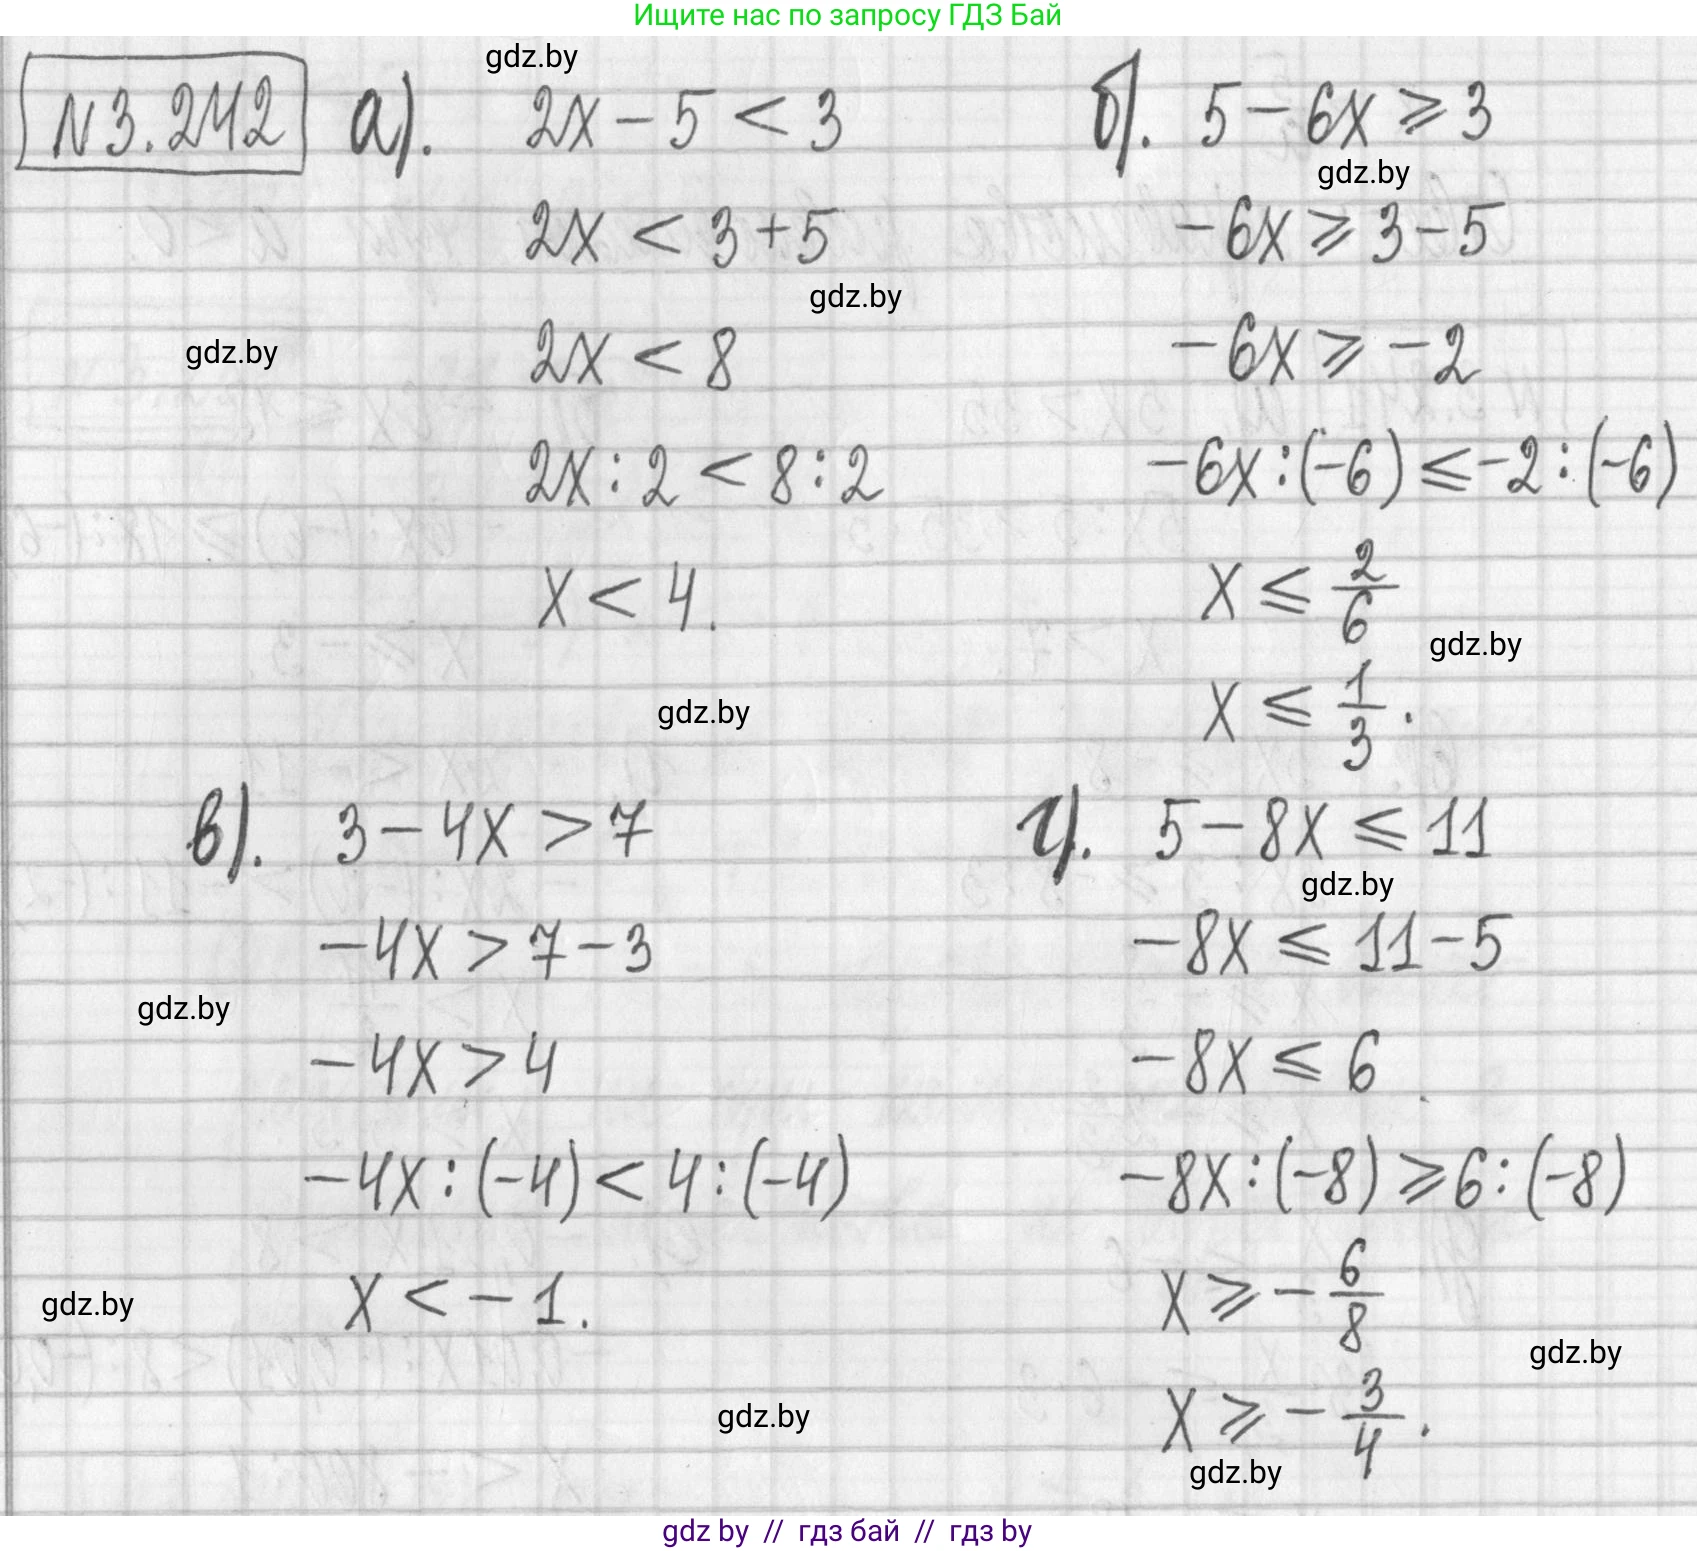 Ищите нас по запросу ГДЗ Бай
gdz.by
N3.242 а). 2x - 5 < 3
2x < 3 + 5
gdz.by
gdz.by
2x < 8
2x : 2 < 8 : 2
x < 4.
gdz.by
б). 5 - 6x ⩾ 3
gdz.by
-6x ⩾ 3 - 5
-6x ⩾ -2
-6x : (-6) ⩽ -2 : (-6)
x ⩽ 2/6
gdz.by
x ⩽ 1/3.
в). 3 - 4x > 7
-4x > 7 - 3
gdz.by
-4x > 4
-4x : (-4) < 4 : (-4)
gdz.by
x < -1.
gdz.by
г). 5 - 8x ⩽ 11
gdz.by
-8x ⩽ 11 - 5
-8x ⩽ 6
-8x : (-8) ⩾ 6 : (-8)
x ⩾ - 6/8
gdz.by
x ⩾ - 3/4.
gdz.by
gdz by // гдз бай // гдз by